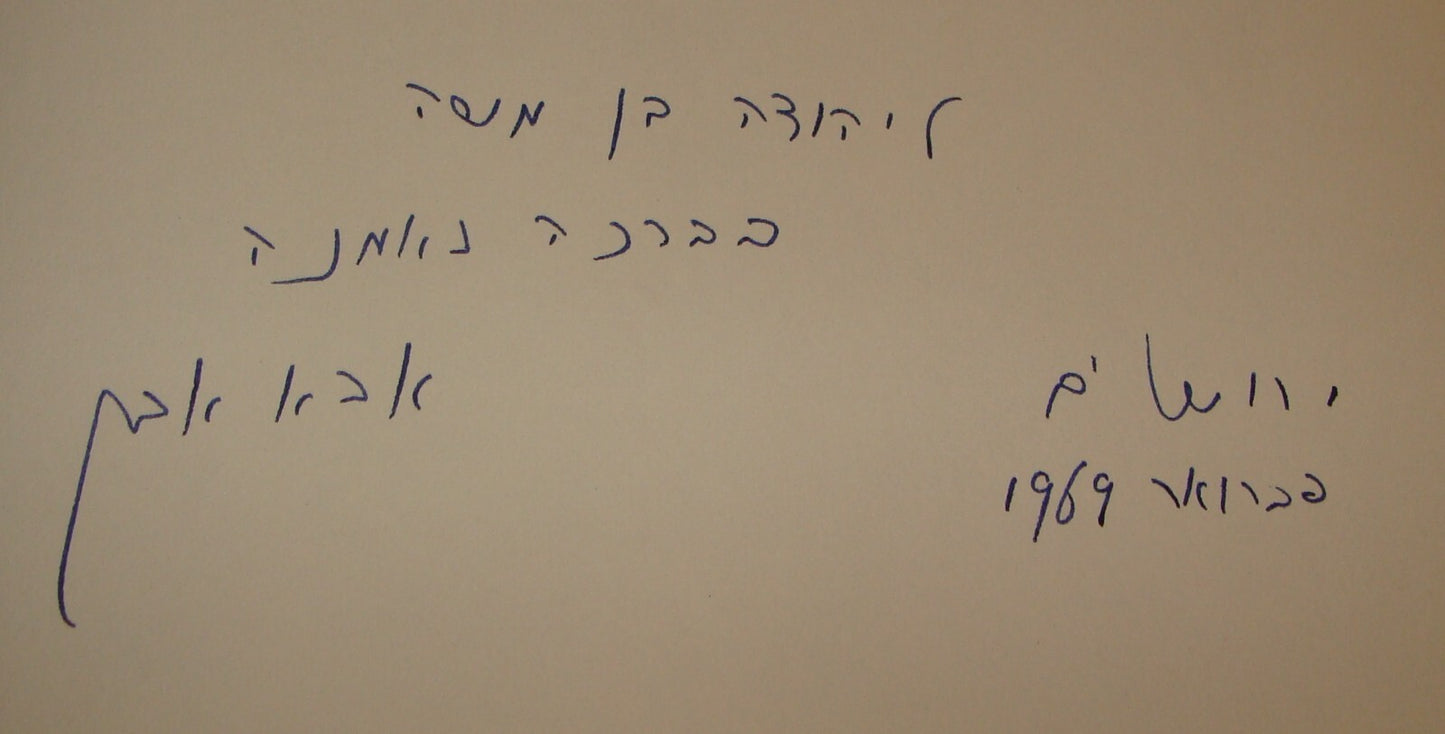 ליהודה בן משה
בברכה נאמנה
אבא אבן
ירושלים
פברואר 1969